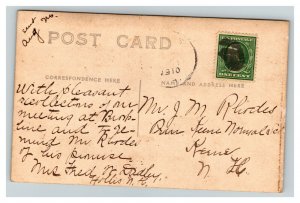 sent
Aug
POST CARD
CORRESPONDENCE HERE
NAME AND ADDRESS HERE
1910
ONE CENT
With pleasant
recollections of our
meeting at Brook-
line and to re-
mind Mr Rhodes
of his promise
Mrs Fred N.
Hollis N. H.
Mr J M Rhodes
Keene
N H